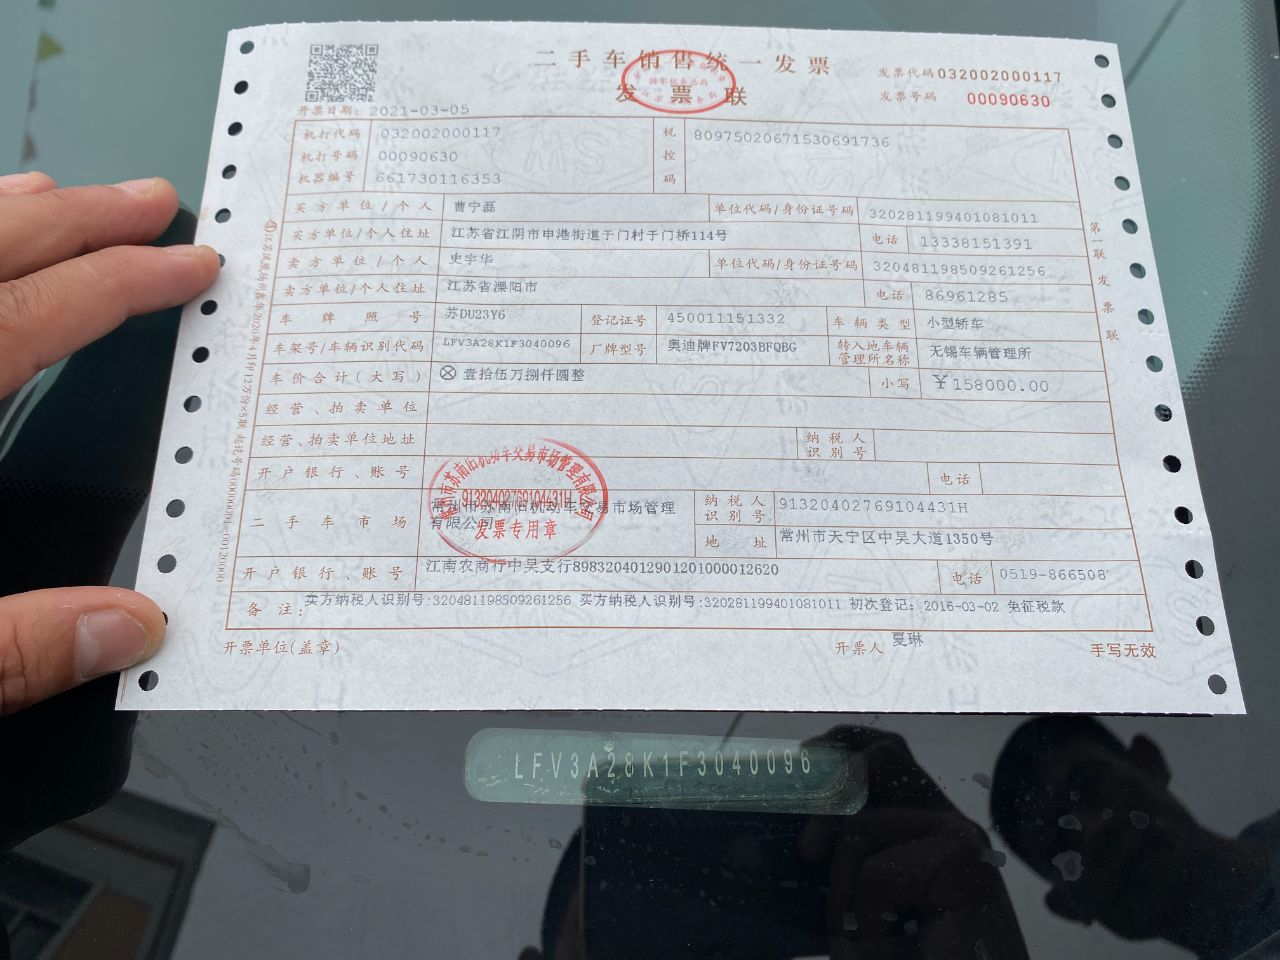 二手车销售统一发票
发票联
国家税务总局
发票代码 032002000117
发票号码 00090630
开票日期: 2021-03-05
机打代码 032002000117
机打号码 00090630
机器编号 661730116353
税控码 80975020671530691736
买方单位/个人 曹宁磊 单位代码/身份证号码 320281199401081011
买方单位/个人住址 江苏省江阴市申港街道于门村于门桥114号 电话 13338151391
卖方单位/个人 史宇华 单位代码/身份证号码 320481198509261256
卖方单位/个人住址 江苏省溧阳市 电话 86961285
车牌照号 苏DU23Y6 登记证号 450011151332 车辆类型 小型轿车
车架号/车辆识别代码 LFV3A28K1F3040096 厂牌型号 奥迪牌FV7203BFQBG 转入地车辆管理所名称 无锡车辆管理所
车价合计(大写) ⊗ 壹拾伍万捌仟圆整 小写 ¥158000.00
经营、拍卖单位
经营、拍卖单位地址 纳税人识别号
开户银行、账号 电话
二手车市场 常州市苏南旧机动车交易市场管理有限公司 纳税人识别号 91320402769104431H
地址 常州市天宁区中吴大道1350号
开户银行、账号 江南农商行中吴支行8983204012901201000012620 电话 0519-866508
备注: 卖方纳税人识别号:320481198509261256 买方纳税人识别号:320281199401081011 初次登记: 2016-03-02 免征税款
开票单位(盖章) 开票人 夏琳 手写无效
第一联 发票联
常州市苏南旧机动车交易市场管理有限公司
91320402769104431H
发票专用章
LFV3A28K1F3040096